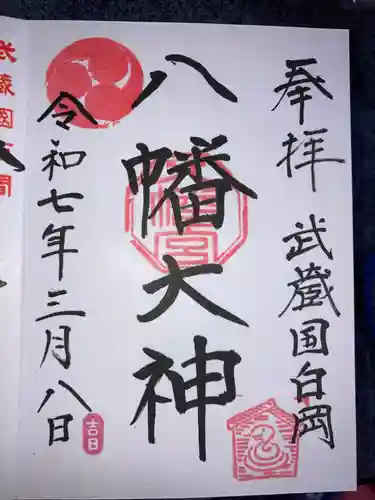 奉拝
武蔵国白岡
八幡大神
令和七年三月八日
吉日